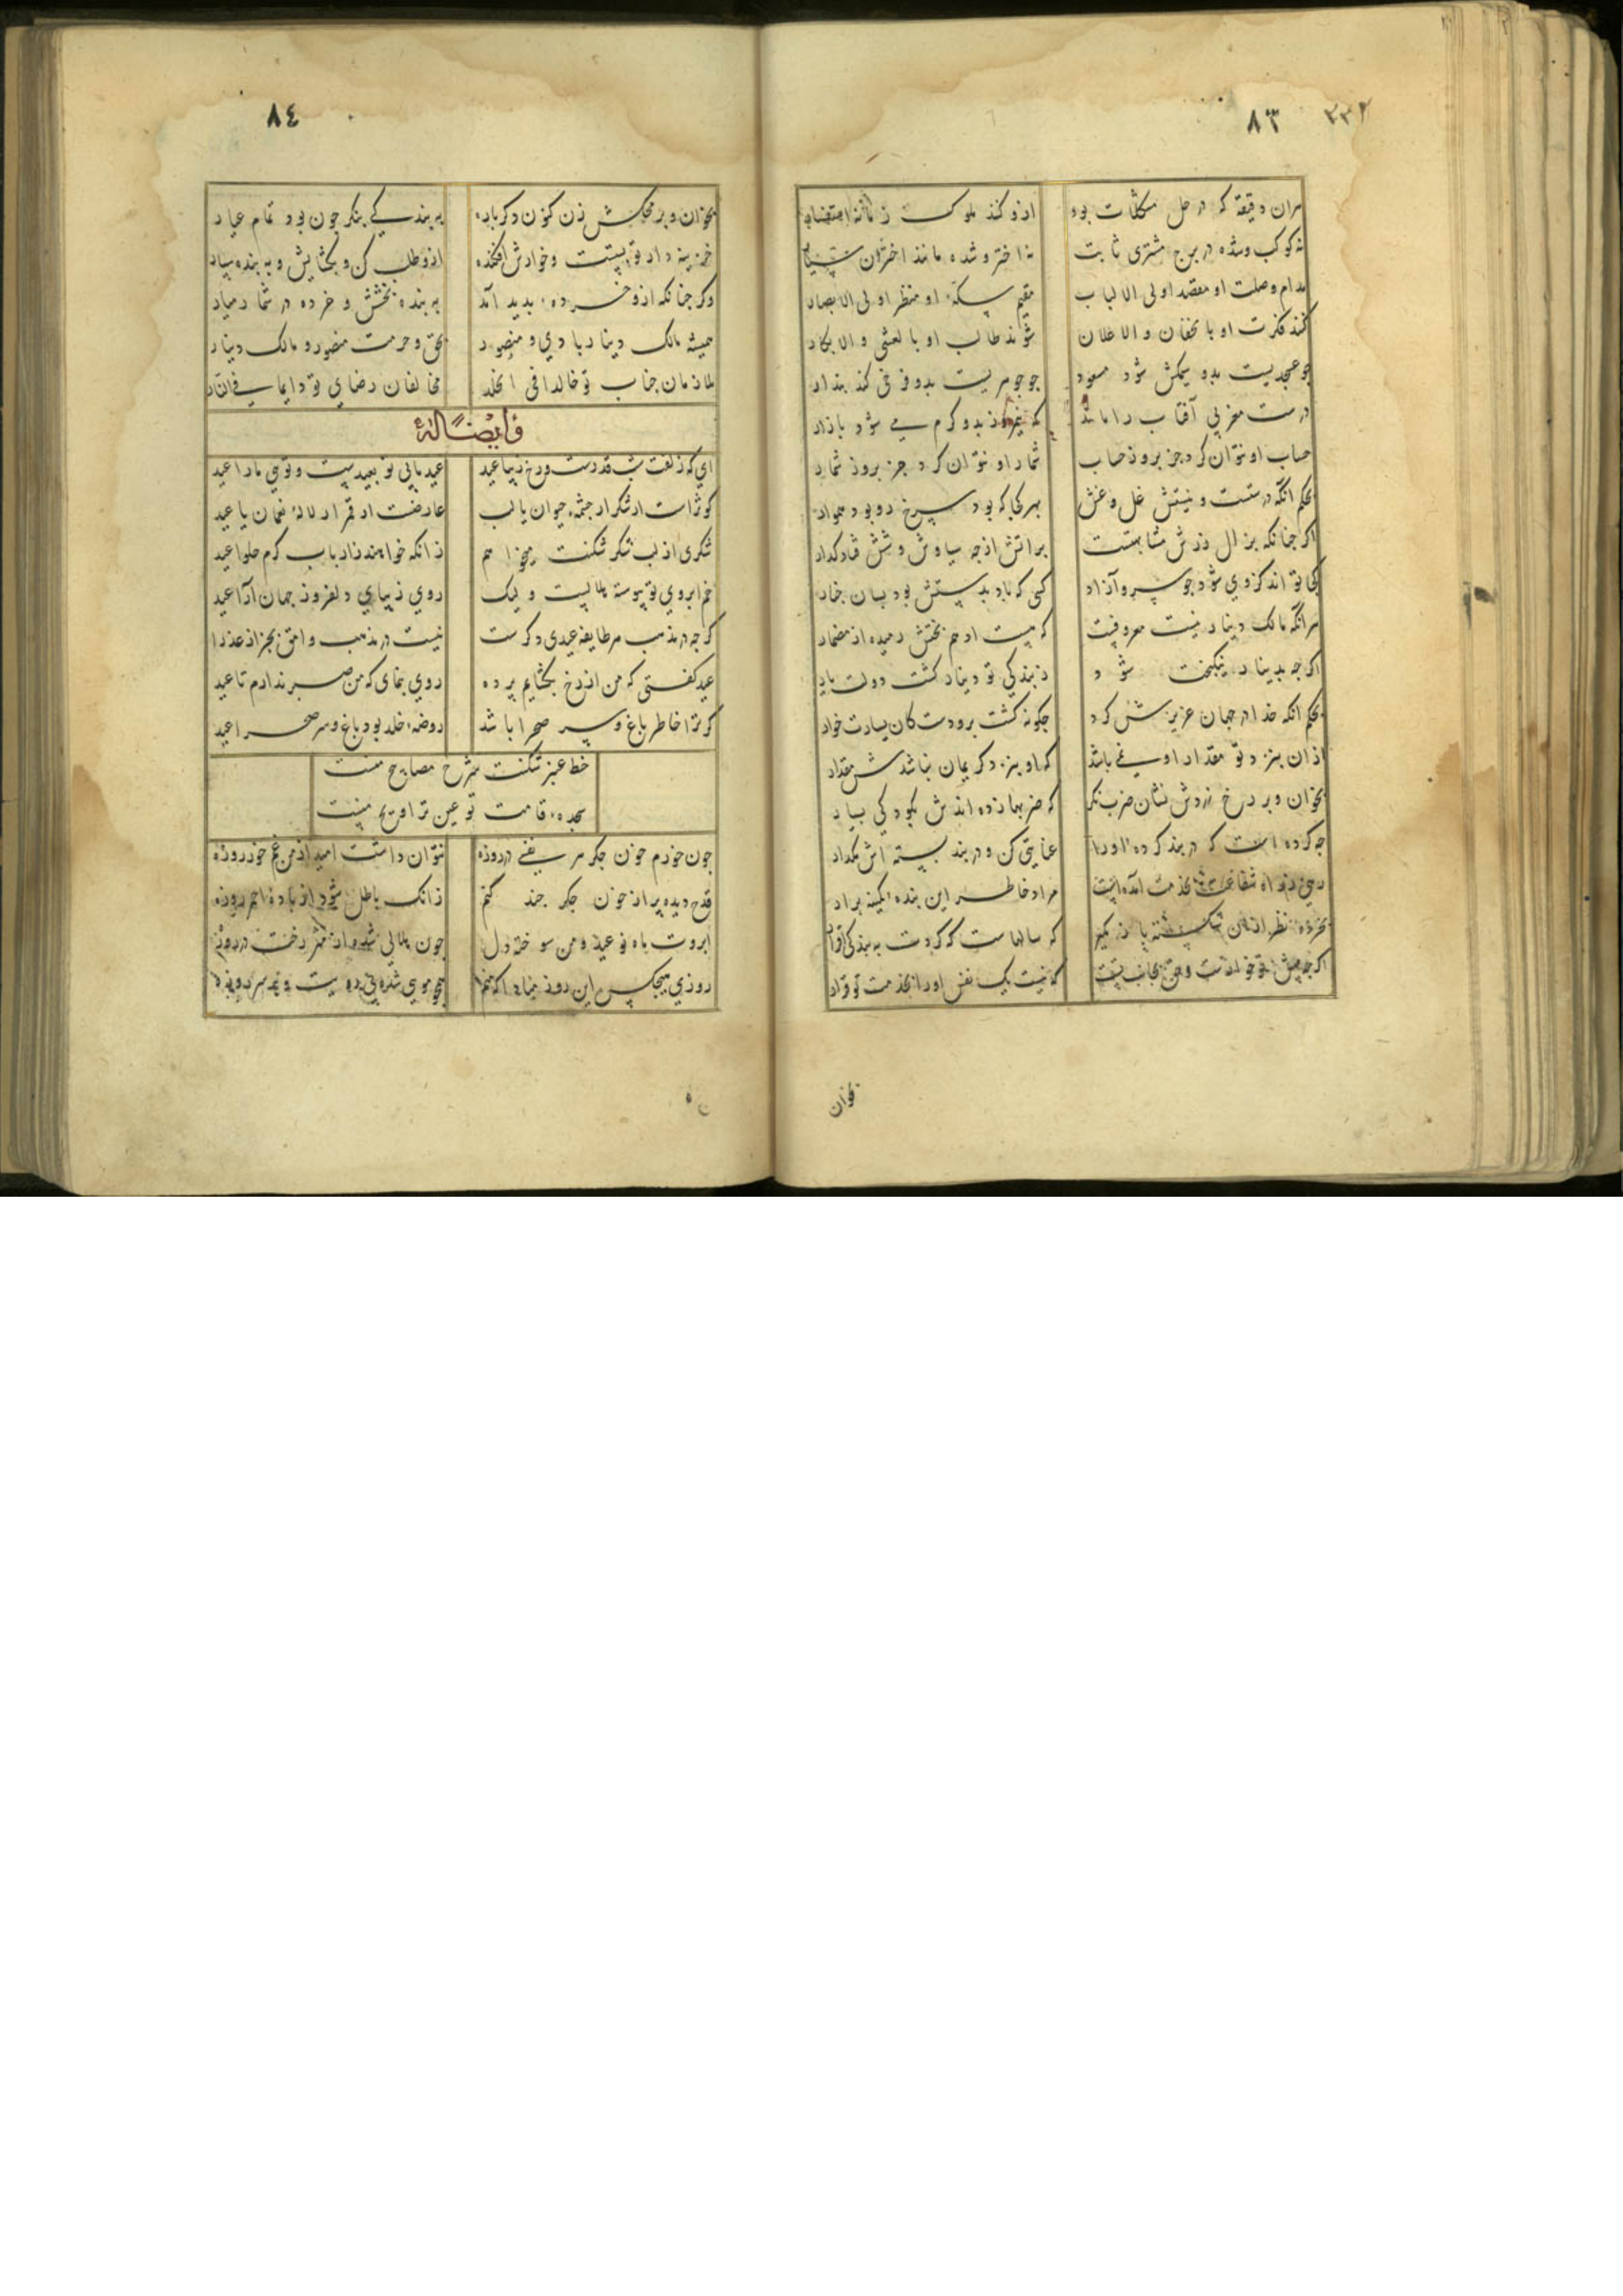 ٨٣ ٣٣٢
هران دقیقه که در حل مشکلات بود ازو کنند ملوک زمانه استفسار
نه کوکب و شده در برج مشتری ثابت نه اختر و شده مانند اختران سیار
مدام وصلت او مقصد اولی الالباب مقیم سکهٔ او منظر اولی الابصار
کنند فکرت او با لخفان و الاعلان شوند طالب او بالعشی والابکار
چو عسجدیست بدو سیمکش شود مسعود چو جوهریست بدو فرخی کند بندار
درست مغربی آفتاب را ماند که نیمروز بدو کرم می شود بازار
حساب او نتوان کرد جز بروز حساب شمار او نتوان کرد جز بروز شمار
بحکم آنکه درستست و نیستش غل و غش بهر کجا که بود سرخ رو بود هموار
اکر چنانکه بزال زرش مشابهتست بر آتش از چه سیاوش وشش
کجا تواند کزوی شود چو سرو آزاد کسی که باد بدستش بود بسان چنار
هر آنکه مالک دینار نیست معروفیست که هست ادهم بختش رمیده از مضمار
اکرچه بدینار نیکبخت شود ز بندکی تو دینار کشت دولت یار
بحکم آنکه خدا در جهان عزیزش کرد چکونه کشت برو دست کان یسارت خوار
از آن بنزد تو مقدار او نمی باشد که او بنزد کریمان نباشدش مقدار
بخوان و بر رخ زردش نشان ضرب نکر که ضربها زده اندش بکودکی بسیار
چه کرده است که در بند کردهٔ او را عنایتی کن و در بند بسته اش مکذار
بخدمت آمده است مراد خاطر این بنده کمینه برار
نظر از آن شکسته باز مکیر که سالهاست که کردت به بندکی اقرار
اکرچه پیش تو که نیست یک نفس او را بخدمت تو قرار
توان
٨٤
بخوان و بر محکش زن کزن دکر باره به بندکی بنکر چون بود تمام عیار
خزینه دار تو بیست و خوارش افکنده ازو طلب کن و بخشایش و به بنده سپار
وکر چنانکه ازو خردهٔ بدید آمد به بنده بخشش و خرده در شمار میار
همیشه مالک دینار بادی و منصور بحق و حرمت منصور و مالک دینار
ملازمان جناب تو خالدا فی الخلد مخالفان رضای تو دایما فی النار
وایضًا له
ای که زلفت شب قدرست و رخ زیبا عید عید مایی تو بعیدیست و تویی ما را عید
کوثر است از شکر از چشمهٔ حیوان یا لب عارضت از قمر از لالهٔ نعمان یا عید
شکری از لب شکر شکنت میخواهم زانکه خواهند ز ارباب کرم حلوا عید
خم ابروی تو پیوسته هلالیست ولیک روی زیبای دلفروز جهان آرا عید
کرچه در مذهب هر طایفه عیدی دکرست نیست در مذهب وامق بجز از عذرا عید
عید کفتی که من از رخ بکشایم پرده روی بنمای که من صبر ندارم تا عید
کر ترا خاطر باغ و سر صحرا باشد روضهٔ خلد بود باغ و سر صحرا عید
خط عنبر شکنت شرح مصابیح منست
سجدهٔ قامت تو عین تراویح منست
چون خورم خون جکر هر نفسی در روزه نتوان داشت امید از من غم خور روزه
قدح دیده پر از خون جکر چند کنم زانک باطل شود از بادهٔ احمر روزه
ابروت ماه نو عید و من سوخته دل چون هلالی شدم از مهر رخت در روزه
روزی هیچکس این روز مبادا که مرا همچو موی شده